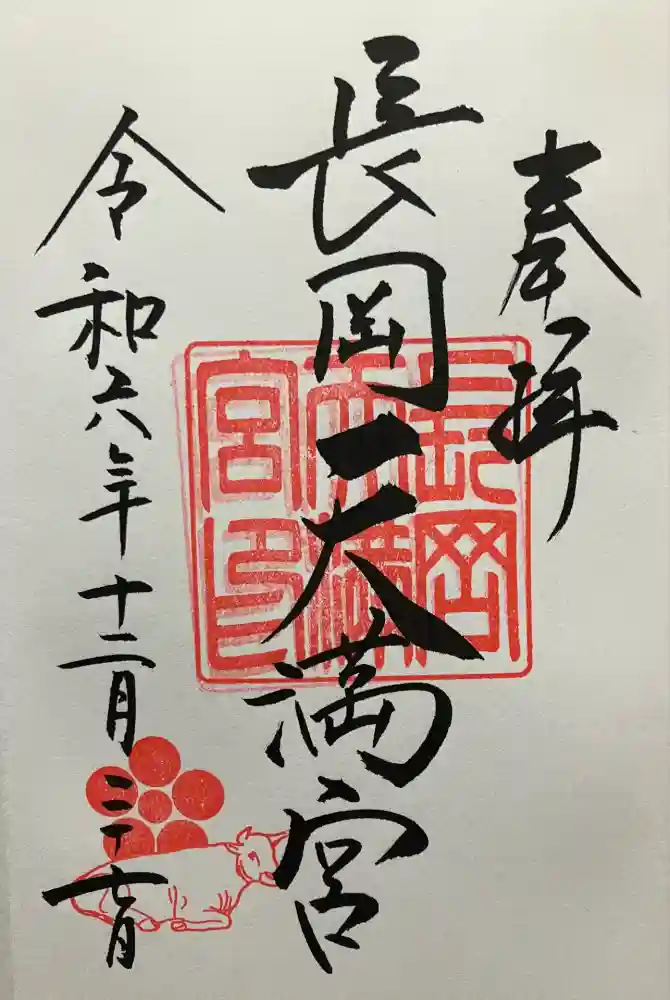 奉拝
長岡天満宮
長岡
天満
宮印
令和六年十二月二十七日